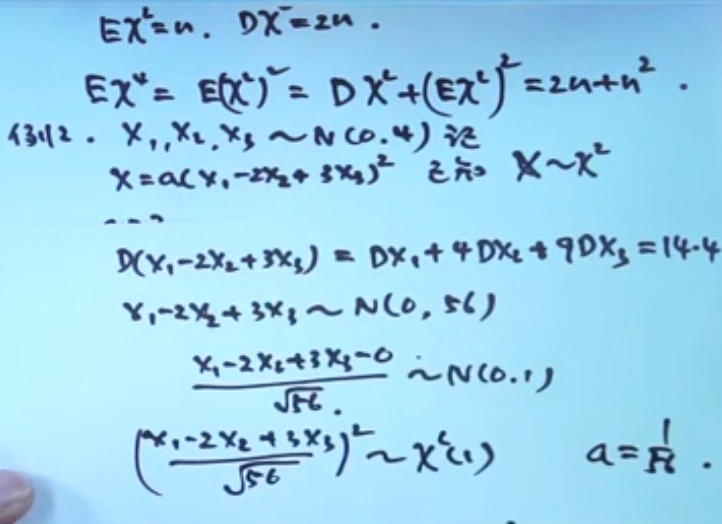 Eχ²=n. Dχ²=2n.
Eχ⁴= E(χ²)²= Dχ²+(Eχ²)²=2n+n².
例2. X₁,X₂,X₃~N(0.4)记
X=a(X₁-2X₂+3X₃)² 已知 X~χ²
---?
D(X₁-2X₂+3X₃) = DX₁+4DX₂+9DX₃=14·4
X₁-2X₂+3X₃~N(0,56)
(X₁-2X₂+3X₃-0)/√56. ~N(0.1)
((X₁-2X₂+3X₃)/√56)²~χ²(1) a=1/56.